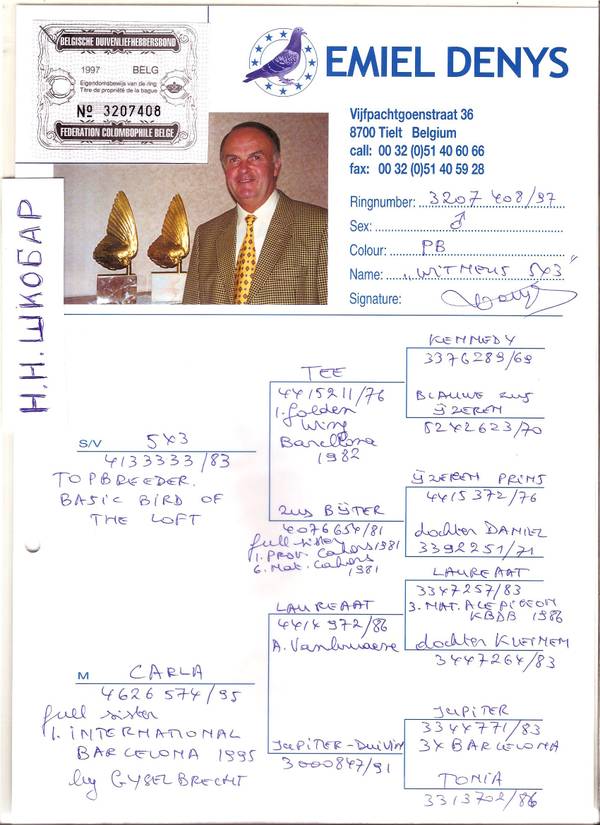 BELGISCHE DUIVENLIEFHEBBERSBOND
1997 BELG
Eigendomsbewijs van de ring
Titre de propriété de la bague
Nº 3207408
FEDERATION COLOMBOPHILE BELGE
EMIEL DENYS
Vijfpachtgoenstraat 36
8700 Tielt Belgium
call: 00 32 (0)51 40 60 66
fax: 00 32 (0)51 40 59 28
Ringnumber: 3207 408/97
Sex: ♂
Colour: PB
Name: „WITNEUS 5X3"
Signature:
Н.Н. ШКОБАР
S/V 5X3
4133333/83
TOPBREEDER.
BASIC BIRD OF
THE LOFT
TEE
4415211/76
1. Golden
Wing
Barcelona
1982
zus BIJTER
4076654/81
full sister
1. Prov. Cahors 1981
6. Nat. Cahors
1981
KENNEDY
3376289/69
BLAUWE zus
IJZEREN
5242623/70
IJZEREN PRINS
4415372/76
dochter DANIEL
3392251/71
M CARLA
4626574/95
full sister
1. INTERNATIONAL
BARCELONA 1995
by GYSELBRECHT
LAUREAAT
4414972/86
A. Vanhuaere
JUPITER-DUIVIN
3000847/91
LAUREAAT
3347257/83
3. NAT. ACE PIGEON
KBDB 1986
dochter KLEINEM
3447264/83
JUPITER
3344771/83
3X BARCELONA
TONIA
3313702/86